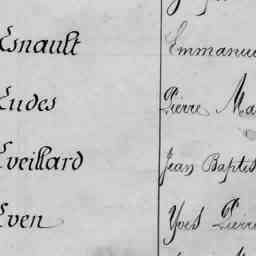 Esnault Emmanue
Eudes Pierre Ma
Eveillard Jean Baptis
Even Yves Pierre